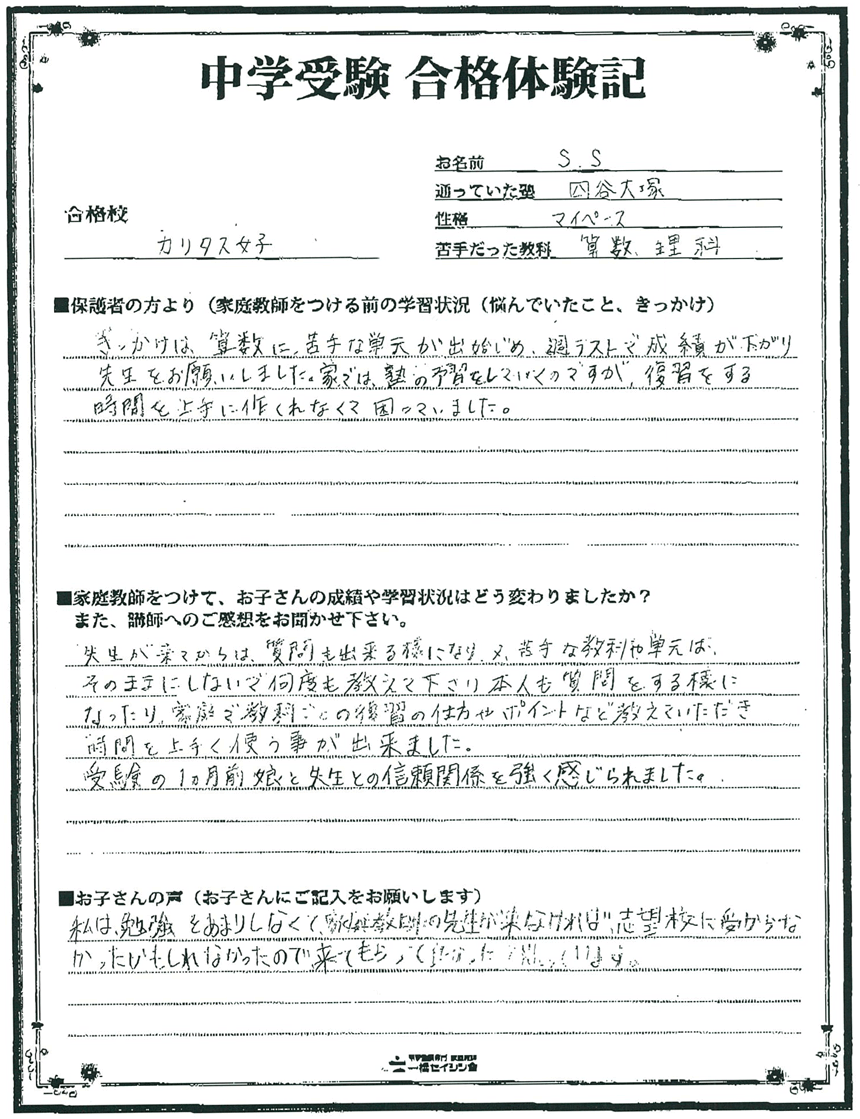 中学受験 合格体験記
お名前 S.S
通っていた塾 四谷大塚
合格校
性格 マイペース
カリタス女子
苦手だった教科 算数、理科
■保護者の方より（家庭教師をつける前の学習状況（悩んでいたこと、きっかけ）
きっかけは、算数に、苦手な単元が出始じめ、週テストで成績が下がり
先生をお願いしました。家では、塾の予習をしていくのですが、復習をする
時間を上手に作くれなくて困っていました。
■家庭教師をつけて、お子さんの成績や学習状況はどう変わりましたか？
また、講師へのご感想をお聞かせ下さい。
先生が来てからは、質問も出来る様になり、又、苦手な教科や単元は、
そのままにしないで何度も教えて下さり本人も質問をする様に
なったり、家庭で教科ごとの復習の仕方やポイントなど教えていただき
時間を上手く使う事が出来ました。
受験の1ヵ月前娘と先生との信頼関係を強く感じられました。
■お子さんの声（お子さんにご記入をお願いします）
私は、勉強をあまりしなくて、家庭教師の先生が来なければ、志望校に受からな
かったかもしれなかったので来てもらって良かったと思っています。
一橋セイシン会